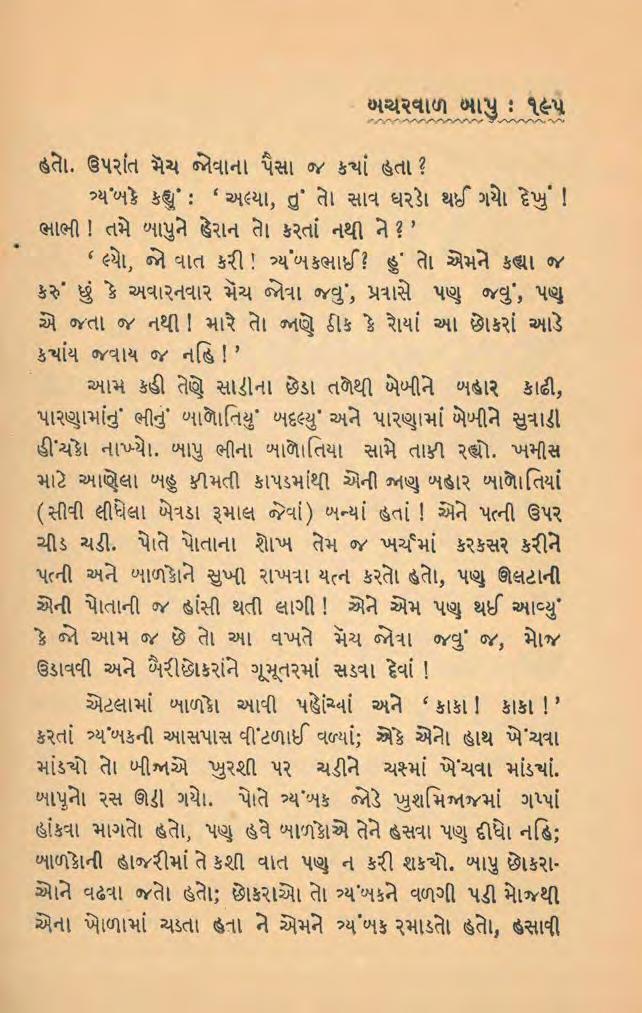 બચરવાળ બાપુ : ૧૯૫
હતો. ઉપરાંત મૅચ જોવાના પૈસા જ ક્યાં હતા ?
ત્ર્યંબકે કહ્યું : ‘ અલ્યા, તું તો સાવ ઘરડો થઈ ગયો દેખું !
ભાભી ! તમે બાપુને હેરાન તો કરતાં નથી ને ? ’
‘ લ્યો, જો વાત કરી ! ત્ર્યંબકભાઈ? હું તો એમને કહ્યા જ
કરું છું કે અવારનવાર મૅચ જોવા જવું, પ્રવાસે પણ જવું, પણ
એ જતા જ નથી ! મારે તો જાણે ઠીક કે રોયાં આ છોકરાં આડે
ક્યાંય જવાય જ નહિ ! ’
આમ કહી તેણે સાડીના છેડા તળેથી બેબીને બહાર કાઢી,
પારણામાંનું ભીનું બાળોતિયું બદલ્યું અને પારણામાં બેબીને સુવાડી
હીંચકો નાખ્યો. બાપુ ભીના બાળોતિયા સામે તાકી રહ્યો. ખમીસ
માટે આણેલા બહુ કીમતી કાપડમાંથી એની જાણ બહાર બાળોતિયાં
(સીવી લીધેલા બેવડા રૂમાલ જેવાં) બન્યાં હતાં ! એને પત્ની ઉપર
ચીડ ચડી. પોતે પોતાના શોખ તેમ જ ખર્ચમાં કરકસર કરીને
પત્ની અને બાળકોને સુખી રાખવા યત્ન કરતો હતો, પણ ઊલટાની
એની પોતાની જ હાંસી થતી લાગી ! એને એમ પણ થઈ આવ્યું
કે જો આમ જ છે તો આ વખતે મૅચ જોવા જવું જ, મોજ
ઉડાવવી અને બૈરીછોકરાંને ગૂમૂતરમાં સડવા દેવાં !
એટલામાં બાળકો આવી પહોંચ્યાં અને ‘ કાકા ! કાકા ! ’
કરતાં ત્ર્યંબકની આસપાસ વીંટળાઈ વળ્યાં; એકે એનો હાથ ખેંચવા
માંડ્યો તો બીજાએ ખુરશી પર ચડીને ચશ્માં ખેંચવા માંડ્યાં.
બાપુનો રસ ઊડી ગયો. પોતે ત્ર્યંબક જોડે ખુશમિજાજમાં ગપ્પાં
હાંકવા માગતો હતો, પણ હવે બાળકોએ તેને હસવા પણ દીધો નહિ;
બાળકોની હાજરીમાં તે કશી વાત પણ ન કરી શક્યો. બાપુ છોકરા-
ઓને વઢવા જતો હતો; છોકરાઓ તો ત્ર્યંબકને વળગી પડી મોજથી
એના ખોળામાં ચડતા હતા ને એમને ત્ર્યંબક રમાડતો હતો, હસાવી